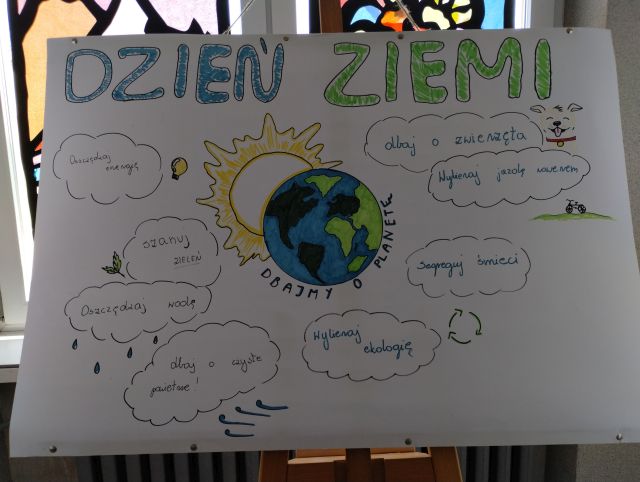 DZIEŃ ZIEMI
Oszczędzaj
energię
dbaj o zwierzęta
Wybieraj jazdę rowerem
szanuj
ZIELEŃ
DBAJMY O PLANETĘ
Segreguj śmieci
Oszczędzaj wodę
Wybieraj
ekologię
dbaj o czyste
powietrze!